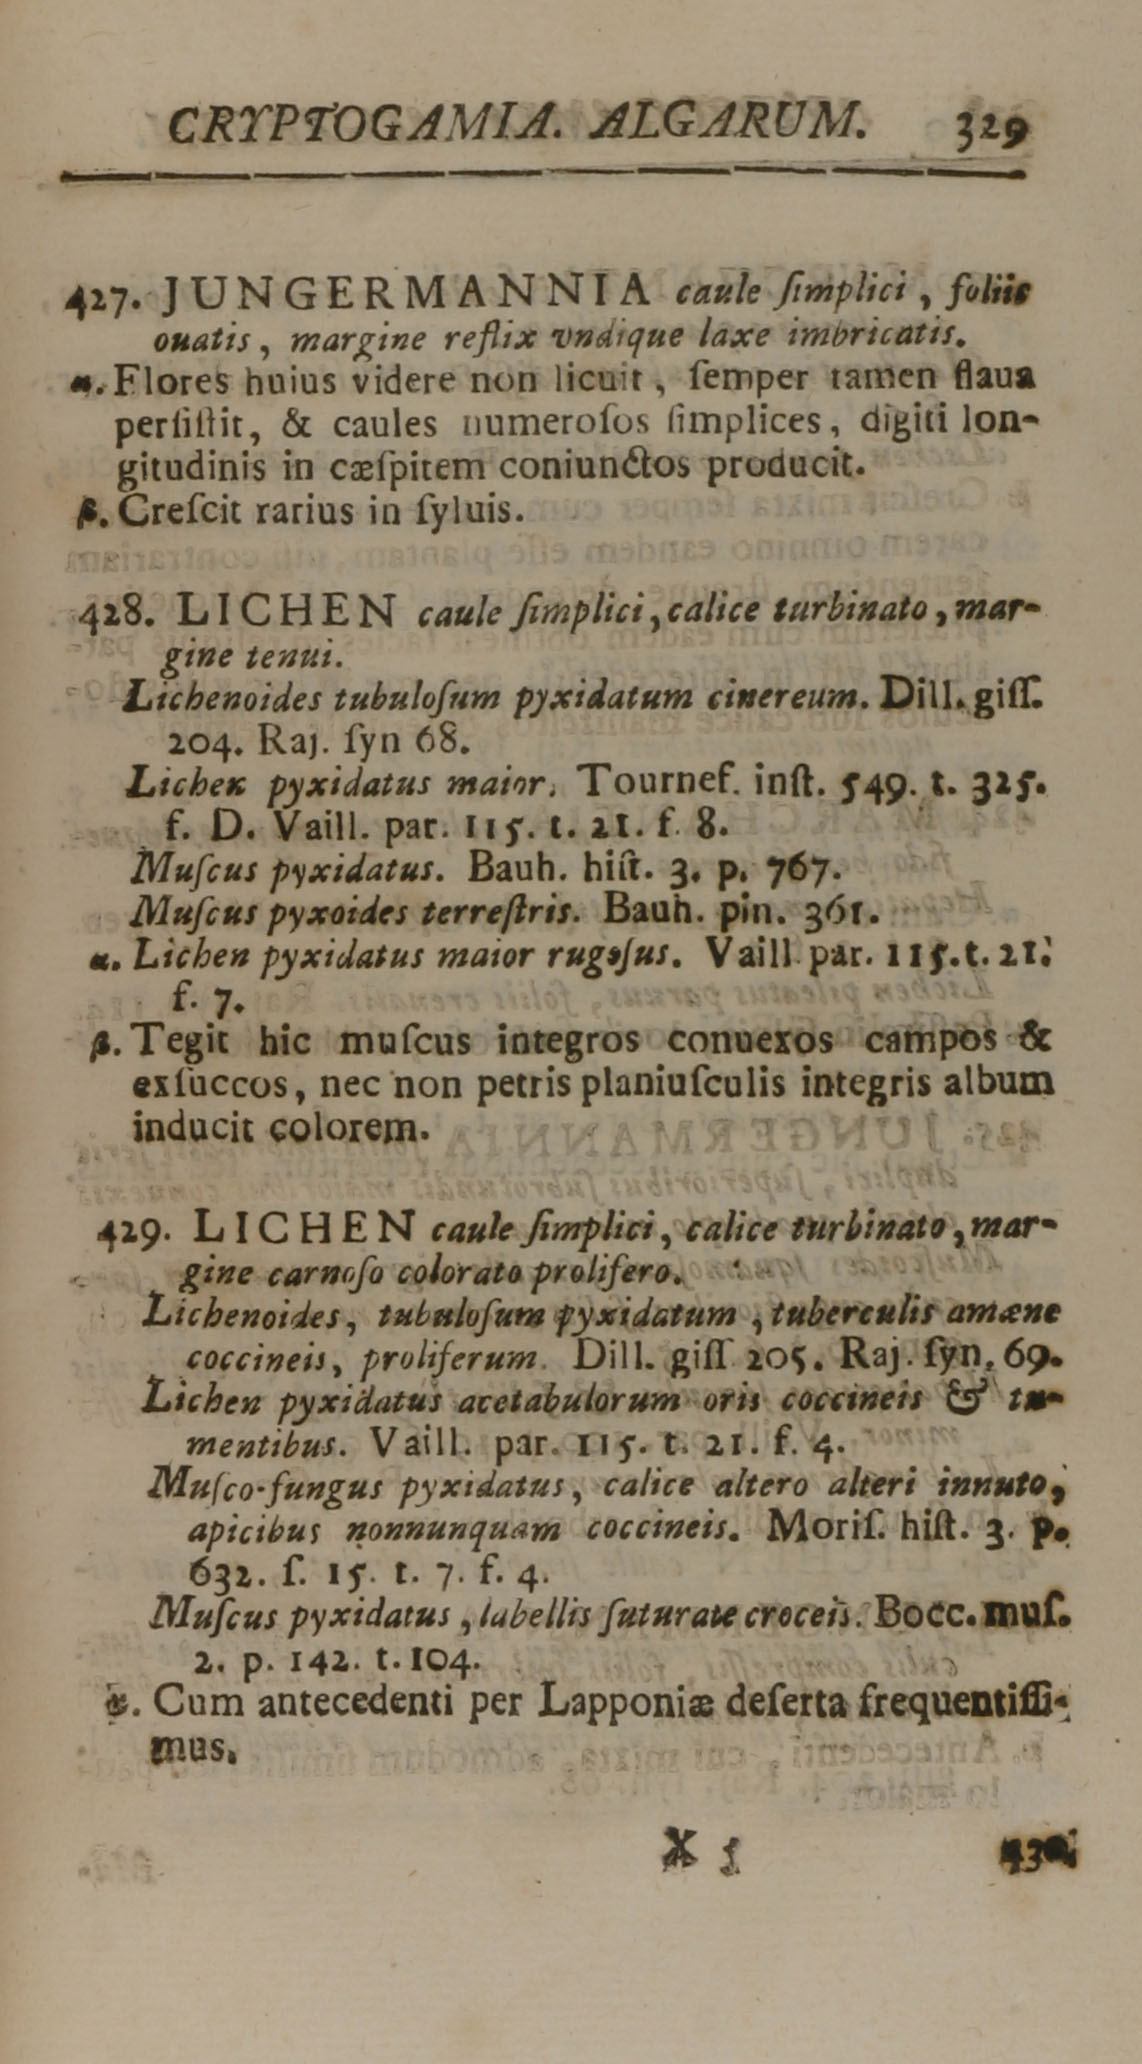 CRYPTOGAMIA. ALGARUM. 329
427. JUNGERMANNIA caule ſimplici, foliis
ouatis, margine reflix vndique laxe imbricatis.
α. Flores huius videre non licuit, ſemper tamen flaua
perſiſtit, & caules numeroſos ſimplices, digiti lon-
gitudinis in cæſpitem coniunctos producit.
β. Creſcit rarius in ſyluis.
428. LICHEN caule ſimplici, calice turbinato, mar-
gine tenui.
Lichenoides tubuloſum pyxidatum cinereum. Dill. giſſ.
204. Raj. ſyn 68.
Lichen pyxidatus maior. Tournef. inſt. 549. t. 325.
f. D. Vaill. par. 115. t. 21. f. 8.
Muſcus pyxidatus. Bauh. hiſt. 3. p. 767.
Muſcus pyxoides terreſtris. Bauh. pin. 361.
α. Lichen pyxidatus maior rugoſus. Vaill. par. 115. t. 21.
f. 7.
β. Tegit hic muſcus integros conuexos campos &
exſuccos, nec non petris planiuſculis integris album
inducit colorem.
429. LICHEN caule ſimplici, calice turbinato, mar-
gine carnoſo colorato prolifero.
Lichenoides, tubuloſum pyxidatum, tuberculis amæne
coccineis, proliferum. Dill. giſſ. 205. Raj. ſyn. 69.
Lichen pyxidatus acetabulorum oris coccineis & tu-
mentibus. Vaill. par. 115. t. 21. f. 4.
Muſco-fungus pyxidatus, calice altero alteri innuto,
apicibus nonnunquam coccineis. Moriſ. hiſt. 3. p.
632. ſ. 15. t. 7. f. 4.
Muſcus pyxidatus, labellis ſuturate croceis. Bocc. muſ.
2. p. 142. t. 104.
α. Cum antecedenti per Lapponiæ deſerta frequentiſſi-
mus.
X 5 430.